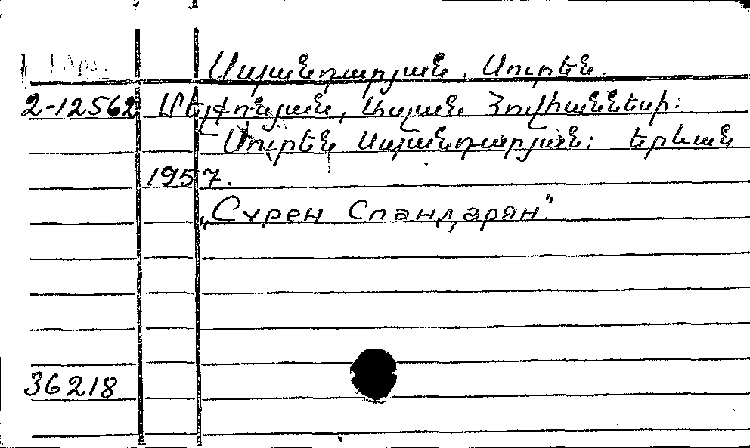 Սպանդարյան, Սուրեն.
2-12562 Մելքոնյան, Աշխեն Հովհաննեսի:
Սուրեն Սպանդարյան: Երևան
1957.
„Сурен Спандарян"
36218